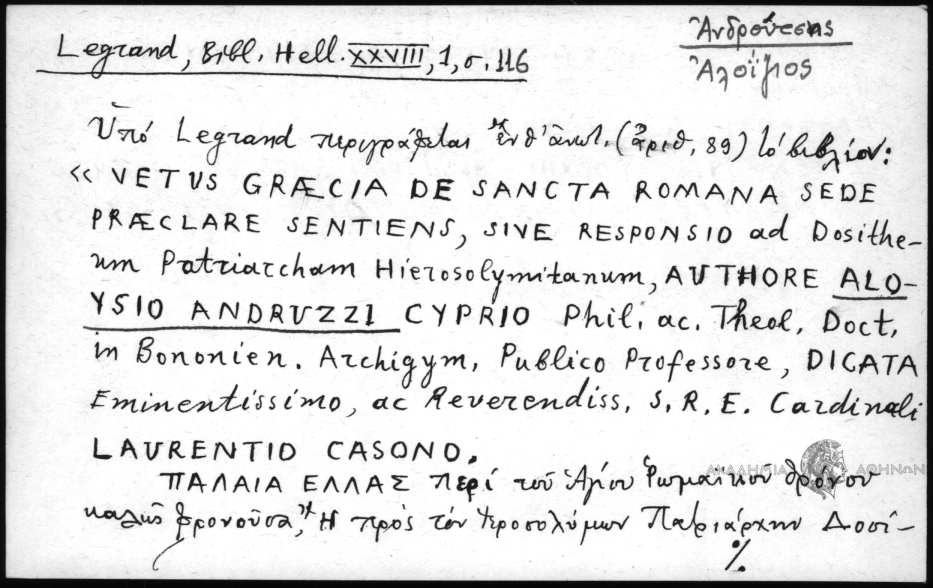 Ἀνδρούτσης
Ἀλοΐσιος
Legrand, Bibl. Hell. XXVIII, 1, σ. 116
Ὑπό Legrand περιγράφεται ἐνθ' ἀνωτ. (ἀριθ. 89) τό βιβλίον:
«VETUS GRÆCIA DE SANCTA ROMANA SEDE
PRÆCLARE SENTIENS, SIVE RESPONSIO ad Dosithe-
um Patriarcham Hierosolymitanum, AUTHORE ALO-
YSIO ANDRUZZI CYPRIO Phil. ac. Theol. Doct.
in Bononien. Archigym. Publico Professore, DICATA
Eminentissimo, ac Reverendiss. S. R. E. Cardinali
LAURENTIO CASONO.
ΠΑΛΑΙΑ ΕΛΛΑΣ περί τοῦ Ἁγίου Ῥωμαϊκοῦ θρόνου
καλῶς φρονοῦσα, Ἤ πρός τόν Ἱεροσολύμων Πατριάρχην Δοσί-
./.
ΑΚΑΔΗΜΙΑ ΑΘΗΝΩΝ